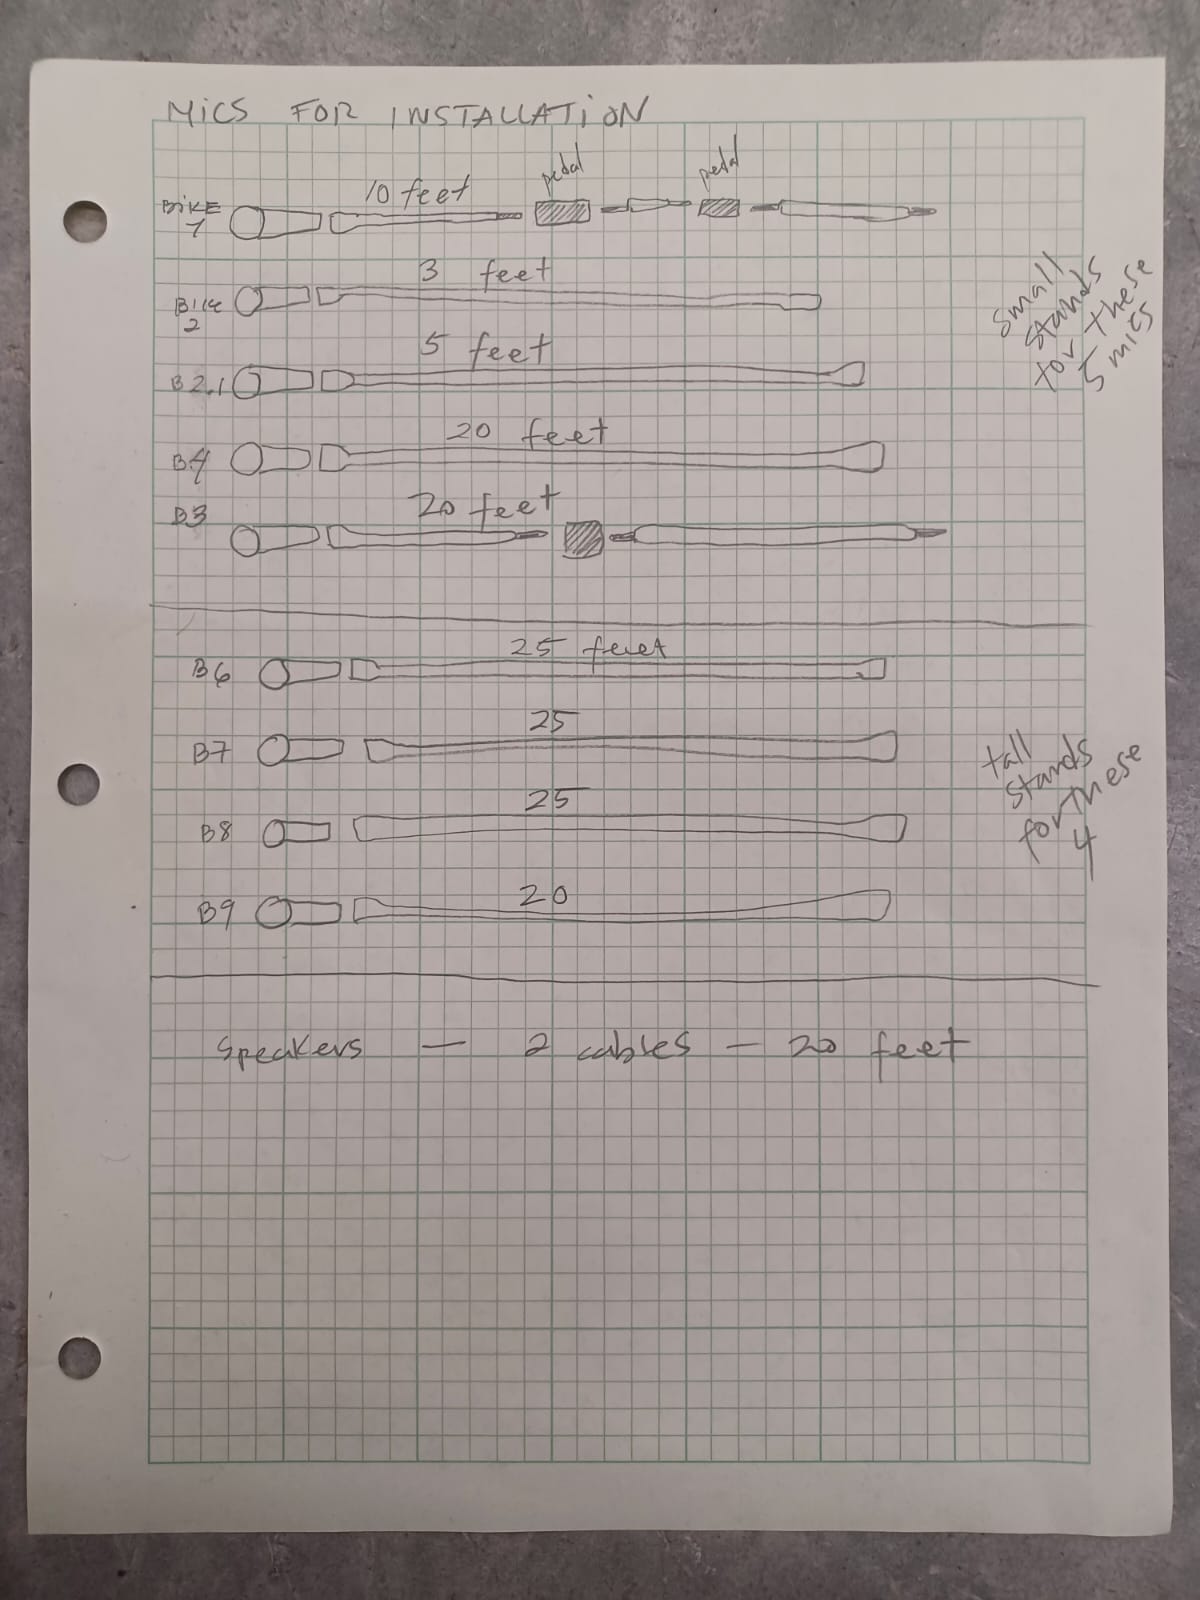 MICS FOR INSTALLATION
pedal pedal
10 feet
BIKE
1
3 feet
BIKE
2
small
stands
for these
5 mics
5 feet
B2.1
20 feet
B4
20 feet
B3
25 feet
B6
25
B7
tall
stands
for these
4
25
B8
20
B9
Speakers — 2 cables — 20 feet